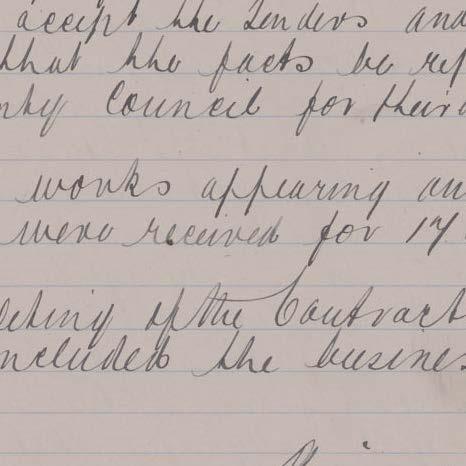 accept the Tenders and
that the facts be ref
nty Council for their
works appearing an
were received for 17
leting of the Contract
ncluded the busines